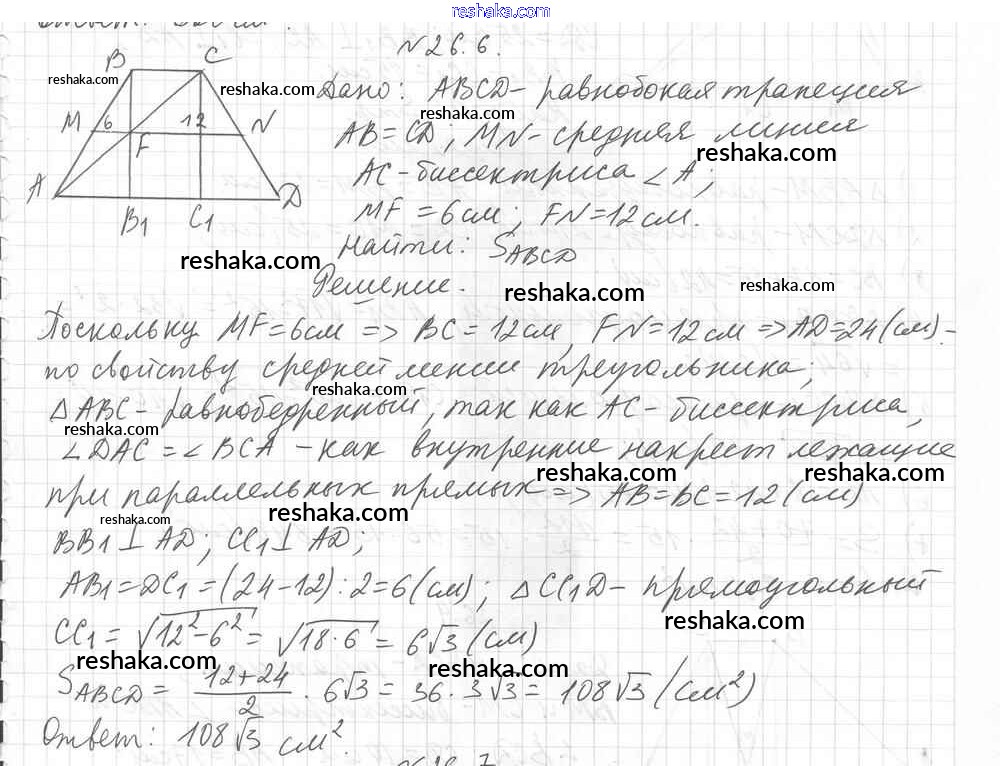 reshaka.com
Ответ: см².
№26.6.
Дано: ABCD - равнобокая трапеция
AB=CD; MN - средняя линия
AC - биссектриса ∠A;
MF = 6 см; FN = 12 см.
Найти: S_ABCD
Решение.
B C
M 6 12 N
F
A B₁ C₁ D
Поскольку MF=6см => BC=12см, FN=12см => AD=24(см) -
по свойству средней линии треугольника;
△ABC - равнобедренный, так как AC - биссектриса,
∠DAC = ∠BCA - как внутренние накрест лежащие
при параллельных прямых => AB=BC=12(см)
BB₁ ⊥ AD; CC₁ ⊥ AD;
AB₁=DC₁=(24-12):2=6(см); △CC₁D - прямоугольный
CC₁ = √12²-6² = √18·6 = 6√3 (см)
S_ABCD = 12+24/2 · 6√3 = 36·3√3 = 108√3 (см²)
Ответ: 108√3 см².
reshaka.com
reshaka.com
reshaka.com
reshaka.com
reshaka.com
reshaka.com
reshaka.com
reshaka.com
reshaka.com
reshaka.com
reshaka.com
reshaka.com
reshaka.com
reshaka.com
reshaka.com
reshaka.com
reshaka.com